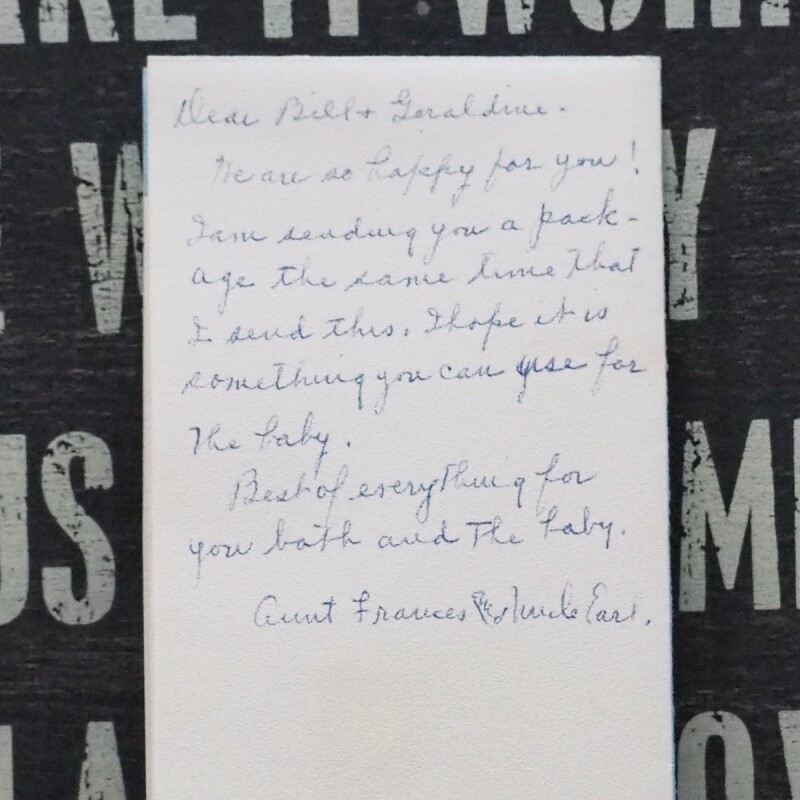 Dear Bill + Geraldine.
We are so happy for you!
I am sending you a pack-
age the same time that
I send this. I hope it is
something you can use for
the baby.
Best of everything for
you both and The baby.
Aunt Frances & Uncle Earl.
US